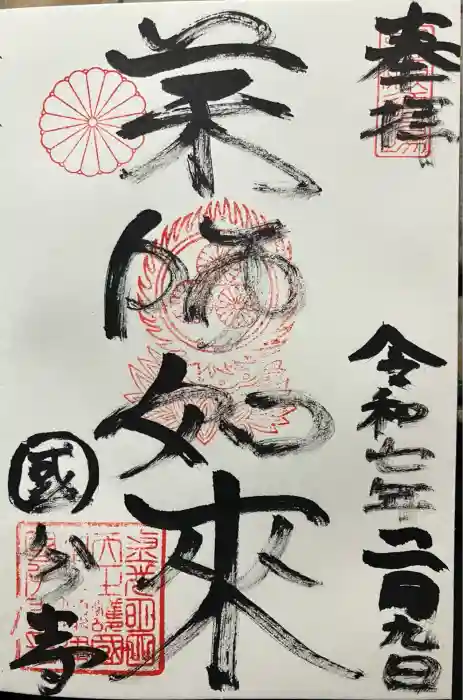 奉拝
令和七年二月九日
薬師如来
國分寺